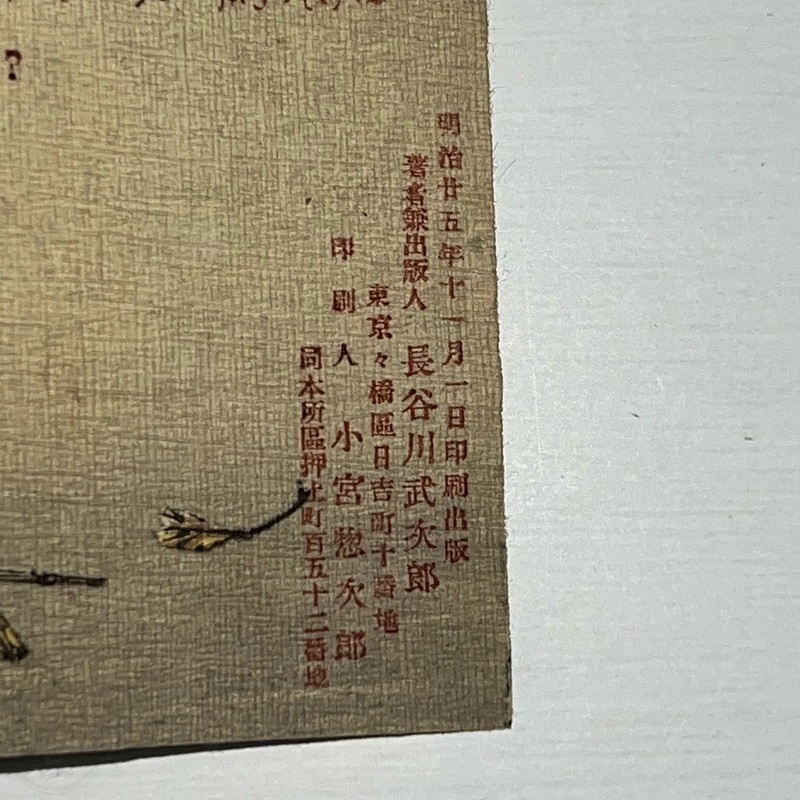 ?
明治廿五年十一月一日印刷出版
著者兼出版人 長谷川武次郎
東京々橋區日吉町十番地
印刷人 小宮惣次郎
同本所區押上町百五十二番地